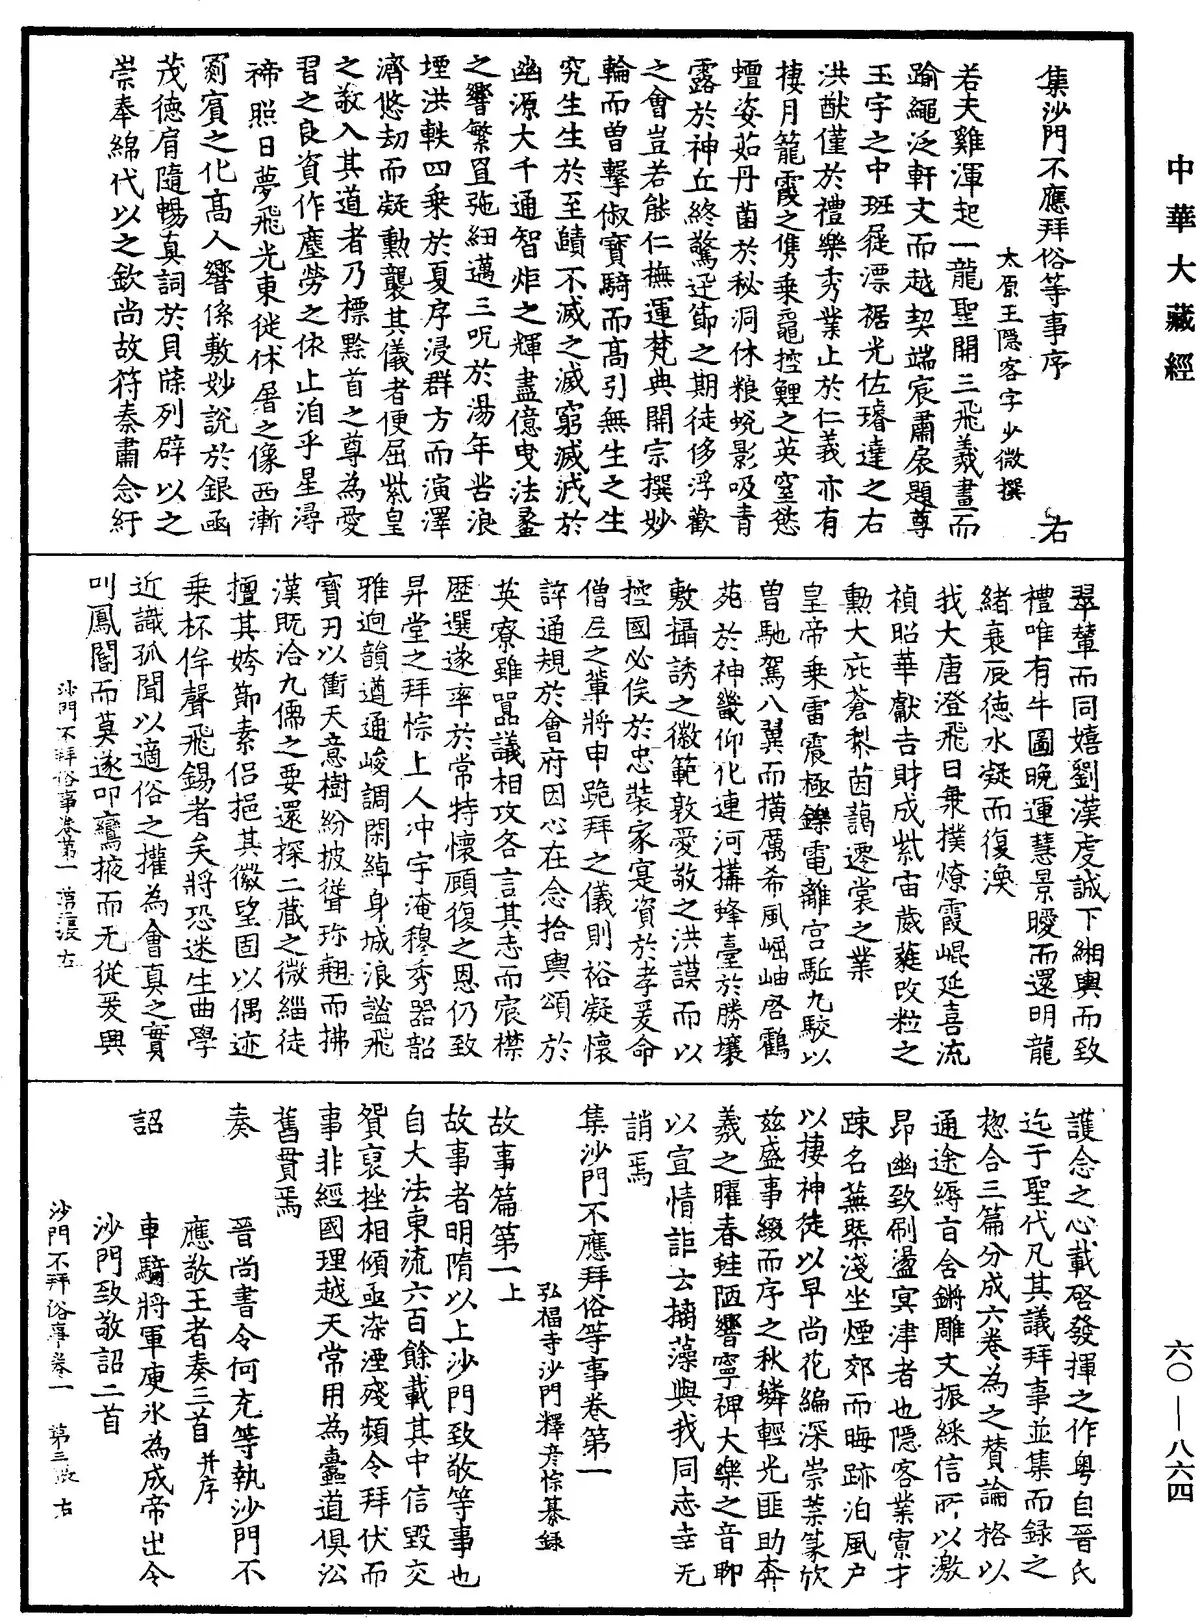 中華大藏經
集沙門不應拜俗等事序 右
太原王隱客字少微撰
若夫雞渾起一龍聖開三飛羲畫而
踰繩泛軒文而越契端扆肅扆題尊
玉字之中班蹤漂裾光佐璿達之右
洪猷僅於禮樂秀業止於仁義亦有
棲月籠霞之儁乘龜控鯉之英窒慾
蟺姿茹丹菌於秘洞休粮蛻影吸青
露於神丘終驚逆節之期徒侈浮歡
之會豈若能仁撫運梵典開宗撰妙
輪而曾擊俶寶騎而高引無生之生
究生生於至賾不滅之滅窮滅滅於
幽源大千通智炬之輝盡億曳法蠡
之響繁罝弛紐邁三呪於湯年苦浪
堙洪軼四乘於夏序浸群方而演澤
濟悠劫而凝勳襲其儀者便屈紫皇
之敬入其道者乃標黔首之尊為愛
習之良資作塵勞之依止洎乎星潯
禘照日夢飛光東徙休屠之像西漸
罽賓之化高人響係敷妙說於銀函
茂德肩隨暢真詞於貝牒列辟以之
崇奉綿代以之欽尚故符秦肅念紆
翠輦而同嬉劉漢虔誠下緗輿而致
禮唯有牛圖晚運慧景曖而還明龍
緒衰辰德水凝而復渙
我大唐澄飛日乘撲燎霞崐延喜流
禎昭華獻吉財成紫宙葳蕤改粒之
勳大庇蒼黎茵藹遷裳之業
皇帝乘雷震極鑠電離宮駈九駮以
曾馳駕八翼而橫厲希風崛岫啓鸖
苑於神畿仰化連河搆蜂臺於勝壤
敷攝誘之徽範敦愛敬之洪謨而以
控國必俟於忠裝家寔資於孝爰命
僧尼之輩將申跪拜之儀則裕凝懷
詳通規於會府因心在念拾輿頌於
英寮雖噐議相攻各言其志而宸襟
歷選遂率於常特懷顧復之恩仍致
昇堂之拜悰上人冲宇淹穆秀器韶
雅迥韻遒通峻調閑綽身城浪謐飛
寶刃以衝天意樹紛披聳珎翹而拂
漢既洽九儒之要還探二藏之微緇徒
擅其姱節素侣挹其徽望固以偶迹
乘杯侔聲飛錫者矣將恐迷生曲學
近識孤聞以適俗之攉為會真之實
叫鳳闇而莫遂叩鸞掖而无從爰興
沙門不拜俗事卷第一 第二張 右
護念之心載啓發揮之作粵自晉氏
迄于聖代凡其議拜事並集而錄之
揔合三篇分成六卷為之賛論格以
通途縟旨含鏘雕文振綵信所以激
昂幽致刷盪冥津者也隱客業寮才
踈名蕪槩淺坐煙郊而晦跡泊風户
以棲神徒以早尚花編深崇藥篆欣
兹盛事綴而序之秋鱗輕光匪助奔
羲之曜春蛙陋響寧裨大樂之音聊
以宣情詎云摛藻與我同志幸无
誚焉
集沙門不應拜俗等事卷第一
弘福寺沙門釋彦悰纂録
故事篇第一上
故事者明隋以上沙門致敬等事也
自大法東流六百餘載其中信毀交
貿裒挫相傾亟染湮殘頻令拜伏而
事非經國理越天常用為蠹道俱㳂
舊貫焉
奏
晉尚書令何充等執沙門不
應敬王者奏三首并序
詔
車騎將軍庾氷為成帝出令
沙門致敬詔二首
沙門不拜俗事卷一 第三張 右
六〇—八六四